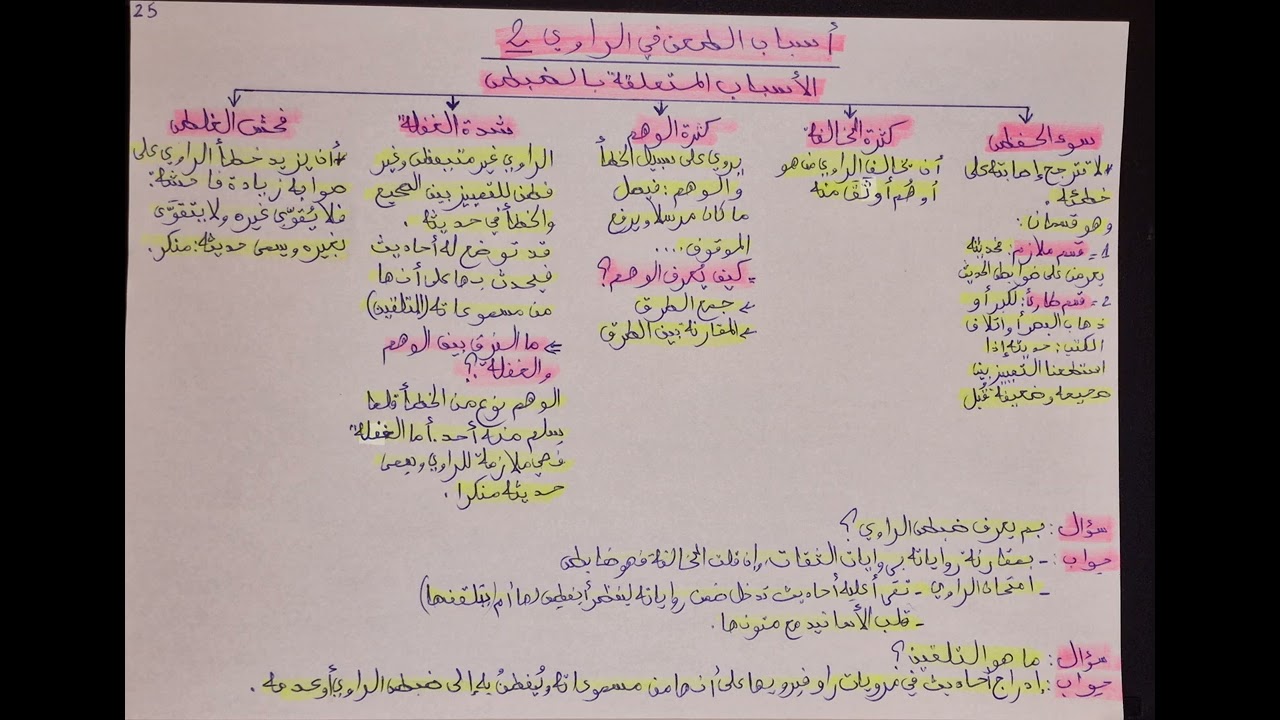 25
أسباب الطعن في الراوي 2
الأسباب المتعلقة بالضبط
سوء الحفظ
لا تترجح إصابته على
خطئه.
وهو قسمان:
1- قسم ملازم: فحديثه
يعرض على ضوابط الحديث
2- قسم طارئ: لكبر أو
ذهاب البصر أو اتلاف
الكتب: حديثه إذا
استطعنا التمييز بين
صحيحه وضعيفه قُبل
كثرة المخالفة
أن يخالف الراوي من هو
أو هُم أوثَق منه
كثرة الوهم
يروي على سبيل الخطأ
والوهم: فيصل
ما كان مرسلا ويرفع
الموقوف....
- كيف يُعرف الوهم؟
← جمع الطرق
← المقارنة بين الطرق
شدة الغفلة
الراوي غير متيقظ وغير
فطن للتمييز بين الصحيح
والخطأ في حديثه.
قد توضع له أحاديث
فيحدث بها على أنها
من مسموعاته (التلقين)
⇐ ما الفرق بين الوهم
والغفلة؟
الوهم نوع من الخطأ قلما
يسلم منه أحد. أما الغفلة
فهي ملازمة للراوي ويسمى
حديثه منكرا.
فحش الغلط
أن يزيد خطأ الراوي على
صوابه زيادة فاحشة:
فلا يُقوّي غيره ولا يتقوّى
بغيره ويسمى حديثه: منكر.
سؤال: بم يعرف ضبط الراوي؟
جواب: - بمقارنة رواياته بروايات الثقات، وإن قلت المخالفة فهو ضابط
- امتحان الراوي - تقرأ عليه أحاديث تدخل ضمن رواياته لينظر أيفطن لها أم يتلقنها)
- قلب الأسانيد مع متونها.
سؤال: ما هو التلقين؟
جواب: إدراج أحاديث في مرويات راو فيرويها على أنها من مسموعاته ويُفطنُ به إلى ضبط الراوي أو عدمه.